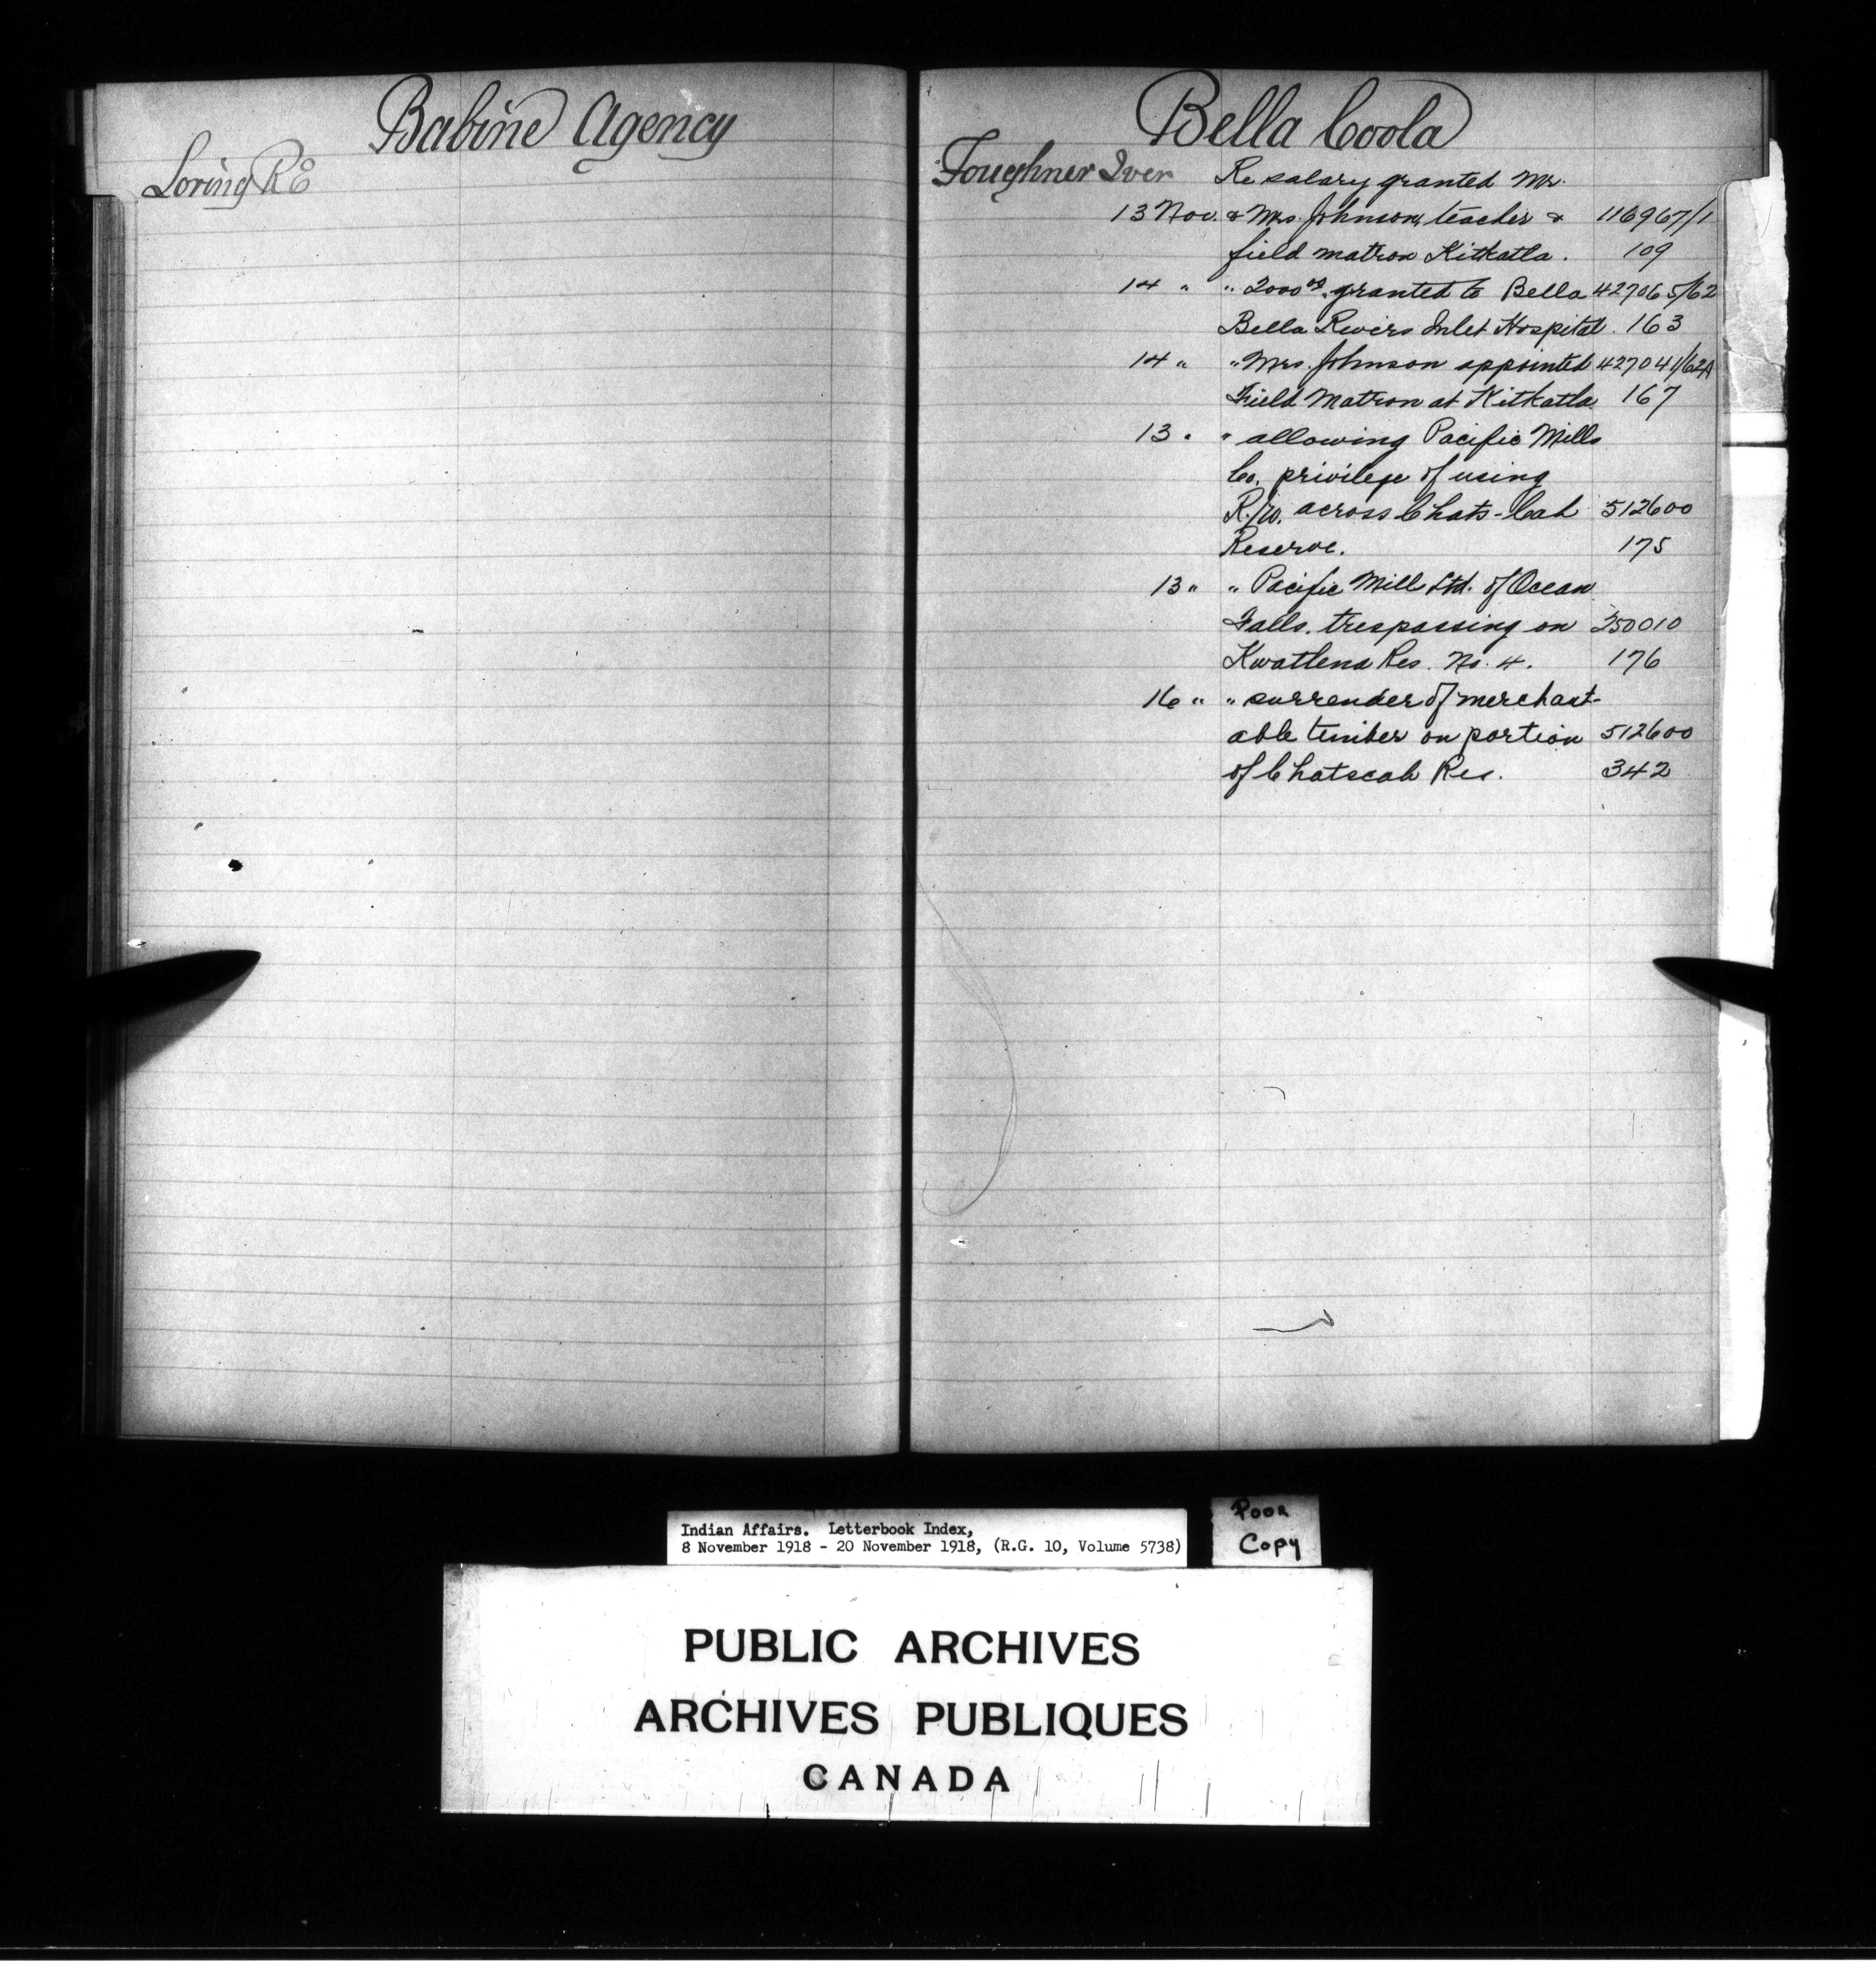 Babine Agency
Loring R E
Bella Coola
Foughner Iver Re salary granted Mr.
13 Nov. & Mrs. Johnson, teacher & 116967/1
field matron Kitkatla. 109
14 " " 2000 00 granted to Bella 427065/62
Bella Rivers Inlet Hospital. 163
14 " " Mrs. Johnson appointed 427041/62A
Field Matron at Kitkatla 167
13 " " allowing Pacific Mills
Co. privilege of using
R/W. across Chats-Cah 512600
Reserve. 175
13 " " Pacific Mill Ltd. of Ocean
Falls. trespassing on 250010
Kwatlena Res. No. 4. 176
16 " " surrender of merchant-
able timber on portion 512600
of Chatscah Res. 342
Indian Affairs. Letterbook Index,
8 November 1918 - 20 November 1918, (R.G. 10, Volume 5738)
Poor
Copy
PUBLIC ARCHIVES
ARCHIVES PUBLIQUES
CANADA